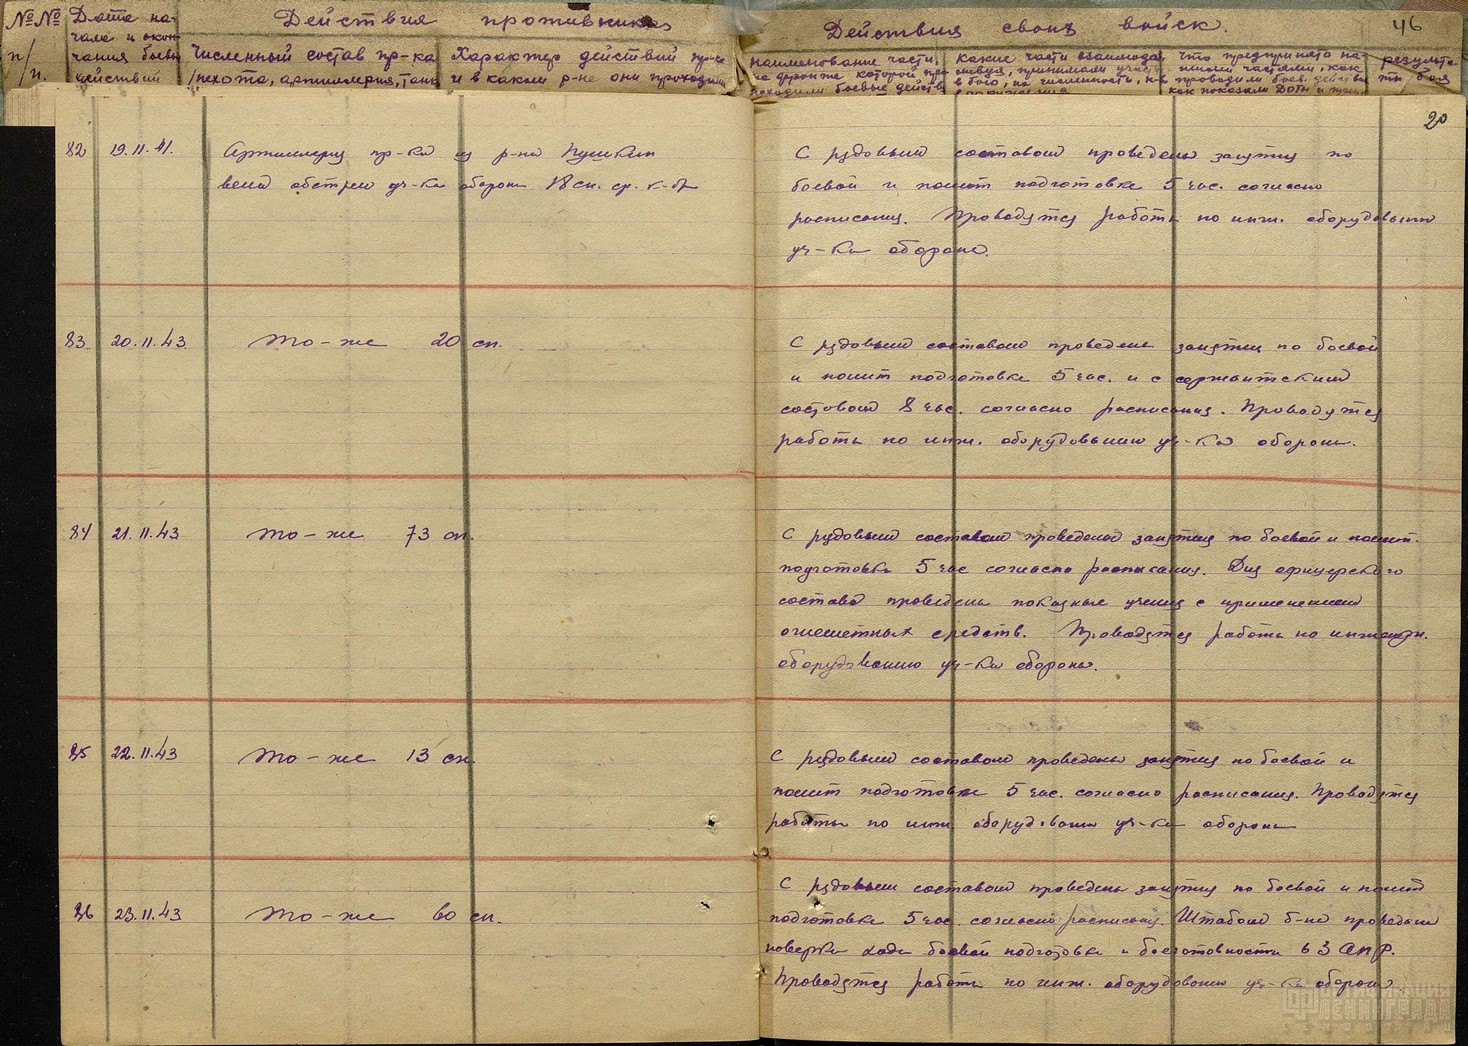 №№ п/п.
Дата начала и окончания боевы действий
Действия противника
Численный состав пр-ка /пехота, артиллерия, танк
Характер действий пр-ка и в каком р-не они проходили
Действия своих войск.
46
наименование части, на фронте которой проходили боевые действ
какие части взаимодействуя, принимали участ в бою, их численность,
что предпринято нашими частями, как проводили боев. действ как показали ДОТы и
результаты боя
20
82 19.11.41. Артиллерия пр-ка из р-на Пушкин
вела обстрел уч-ка обороны 18 сн. ср. к-бр
С рядовым составом проведены занятия по
боевой и полит подготовке 5 час. согласно
расписания. Проводятся работы по инж. оборудованию
уч-ка обороны.
83 20.11.43 то-же 20 сн.
С рядовым составом проведены занятия по боевой
и полит подготовке 5 час. и с сержантским
составом 8 час. согласно расписания. Проводятся
работы по инж. оборудованию уч-ка обороны.
84 21.11.43 то-же 73 сн.
С рядовым составом проведены занятия по боевой и полит.
подготовке 5 час согласно расписания. Для офицерского
состава проведены показные учения с применением
огнеметных средств. Проводятся работы по инженерн.
оборудованию уч-ка обороны.
85 22.11.43 то-же 13 сн.
С рядовым составом проведены занятия по боевой и
полит подготовке 5 час. согласно расписания. Проводятся
работы по инж. оборудованию уч-ка обороны
86 23.11.43 то-же 60 сн.
С рядовым составом проведены занятия по боевой и полит
подготовке 5 час. согласно расписания. Штабом б-на проведена
поверка хода боевой подготовки и боеготовности в 3 АПР.
Проводятся работы по инж. оборудованию уч-ка обороны.
ФОРТИФИКАЦИЯ
ЛЕНИНГРАДА